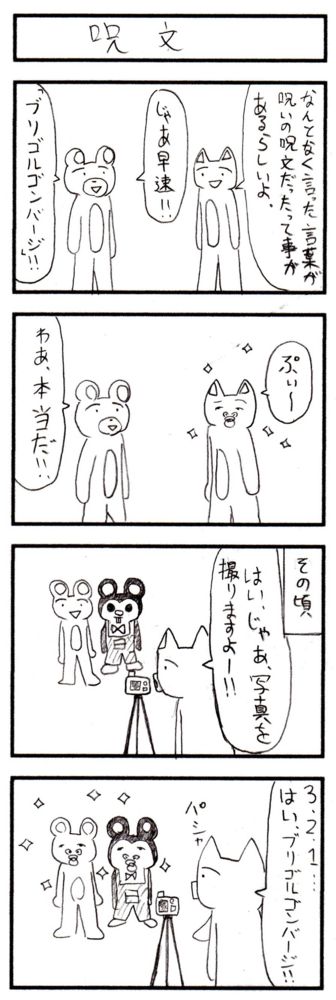 呪文
なんとなく言った言葉が
呪いの呪文だったって事が
あるらしいよ、
じゃあ早速!!
「ブリゴルゴンバージ」!!
ぷぃ〜
わあ、本当だ!!
その頃
はい、じゃあ、写真を
撮りますよー!!
3.2.1…
はい、ブリゴルゴンバージ!!
パシャ